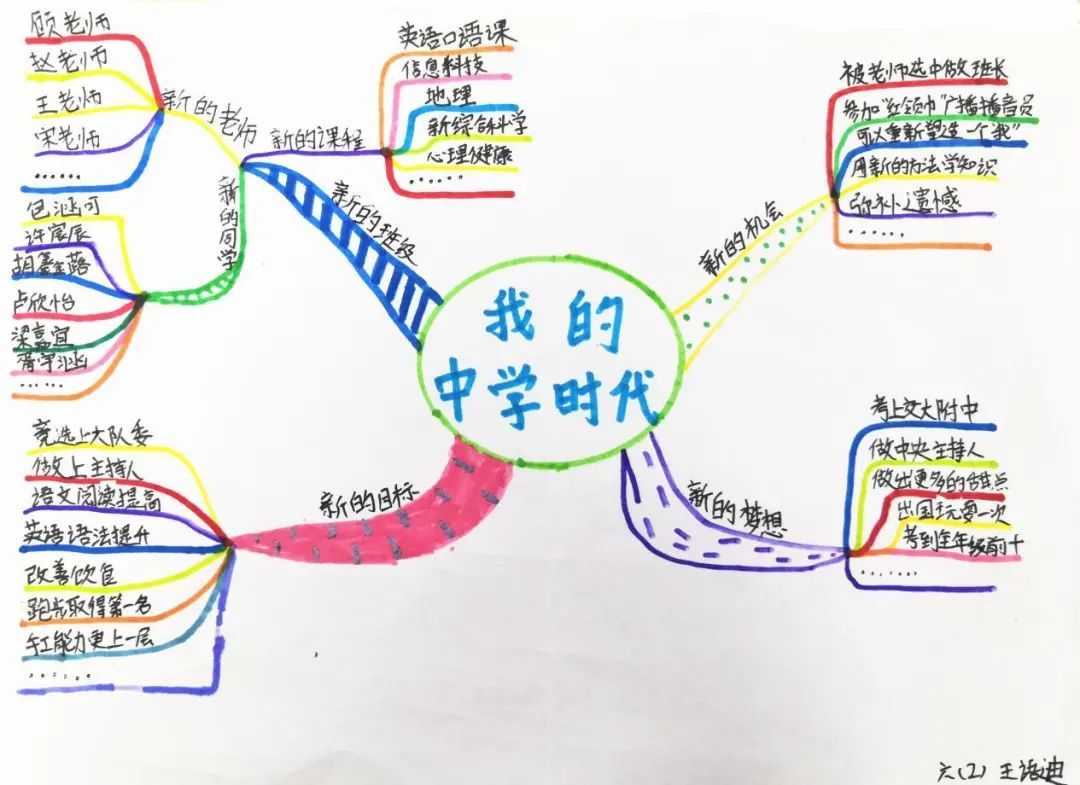 我的
中学时代
新的班级
新的老师
顾老师
赵老师
王老师
宋老师
……
新的同学
包涵可
许宸辰
卢欣怡
梁嘉宜
……
新的课程
英语口语课
信息科技
地理
新综合科学
心理健康
……
新的机会
被老师选中做班长
参加"红领巾"广播播音员
可以重新塑造一个"我"
用新的方法学知识
弥补遗憾
……
新的目标
竞选上大队委
做上主持人
语文阅读提高
英语语法提升
改善饮食
跑步取得第一名
手工能力更上一层
……
新的梦想
考上交大附中
做中央主持人
做出更多的甜点
出国玩耍一次
考到全年级前十
……
六(2) 王语迪